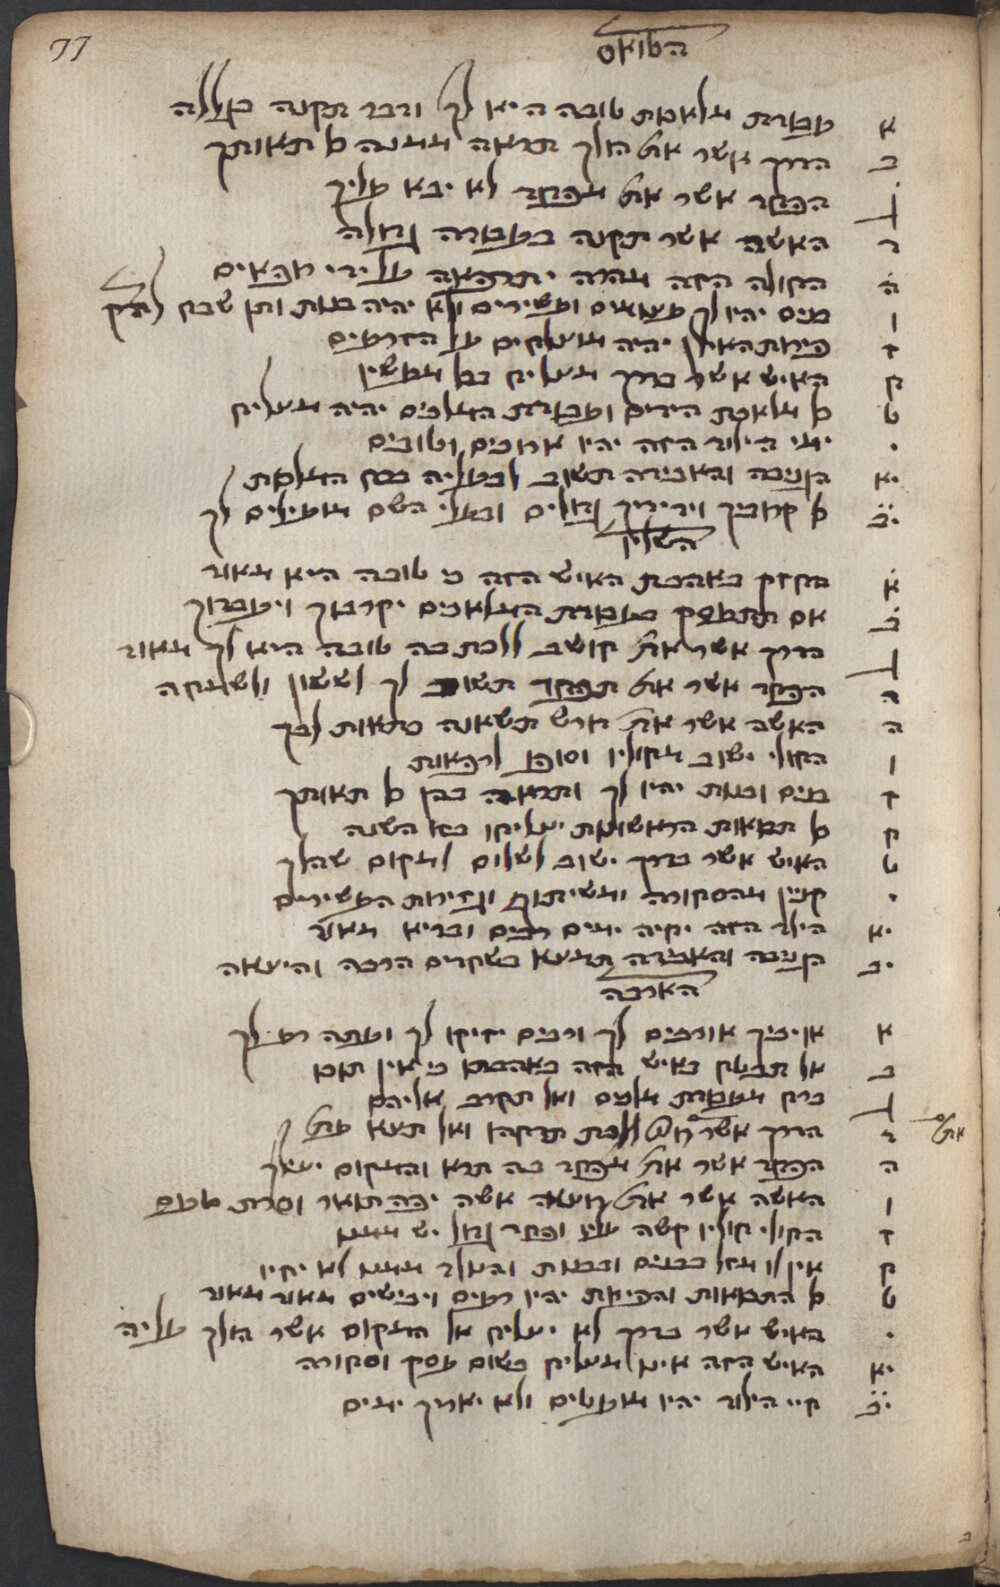 77
הטואס
א עבודת מלאכת טובה היא לך ודבר תקנה
ב הדרך אשר אתה הולך תראה ממנה כל תאותך
ג הפחד אשר אתה מפחד לא יבא עליך
ד האשה אשר תקנה בעבורה גדולה
ה החולה הזה מהרה יתרפאה על ידי רופאים
ו בנים יהיו לך ועשירים ולא יהיה בנות ותן שבח
ז פירות האילן יהיה מוצלחים עם הזרעים
ח האיש אשר בדרך מצליח בכל מעשיו
ט כל מלאכת הידים ועבודת המלכים יהיה מצליח
י ימי הילוד הזה יהיו ארוכים וטובים
יא הגניבה והאבידה תשוב לבעליה
יב כל קרוביך וידידיך גדולים ובעלי השם מועילים לך
השליו
א החזק באהבת האיש הזה כי טובה היא מאוד
ב אם תתעסק בעבודת המלאכים יקרבוך ויעבדוך
ג הדרך אשר אתה חושב ללכת בה טובה היא לך מאוד
ד הפחד אשר אתה תפחד תשוב לך לששון ולשמחה
ה האשה אשר אתה דורש תשאנה בתאות לבך
ו החולי ישוב מחוליו וסופו לרפאות
ז בנים ובנות יהיו לך ותראה בהן כל תאותך
ח כל תבואות הראשונות יצליחו בזו השנה
ט האיש אשר בדרך ישוב לשלום למקום שהלך
י קנין מהסחורה ומשיתוף וגזירות העשירים
יא הילד הזה יחיה ימים רבים ובריא מאוד
יב הגניבה והאבדה תמצא בשקרים הרבה והיצאה
הארבה
א אויביך אורבים לך ורבים יזיקו לך ועתה רע לך
ב אל תבטח באיש הזה באהבתו כי אין תוכו
ג ברח מעבודת מלכים ואל תקרב אליהם
ד הדרך אשר רוצה ללכת תרחק ואל תצא עתה
אתה
ה הפחד אשר אתה מפחד בה תרא והמקום יצילך
ו האשה אשר אתה רואה אשה יפה תואר וסרת טעם
ז החולי חוליו קשה עליו ופחד גדול יש ממנו
ח אין לו מזל בבנים ובבנות והנולד ממנו לא יחיו
ט כל התבואות והפירות יהיו רעים ויבישים מאוד מאוד
י האיש אשר בדרך לא יצליח אל המקום אשר הולך עליה
יא האיש הזה אינו מצליח בשום עסק וסחורה
יב חיי הילוד יהיו מועטים ולא יאריך ימים